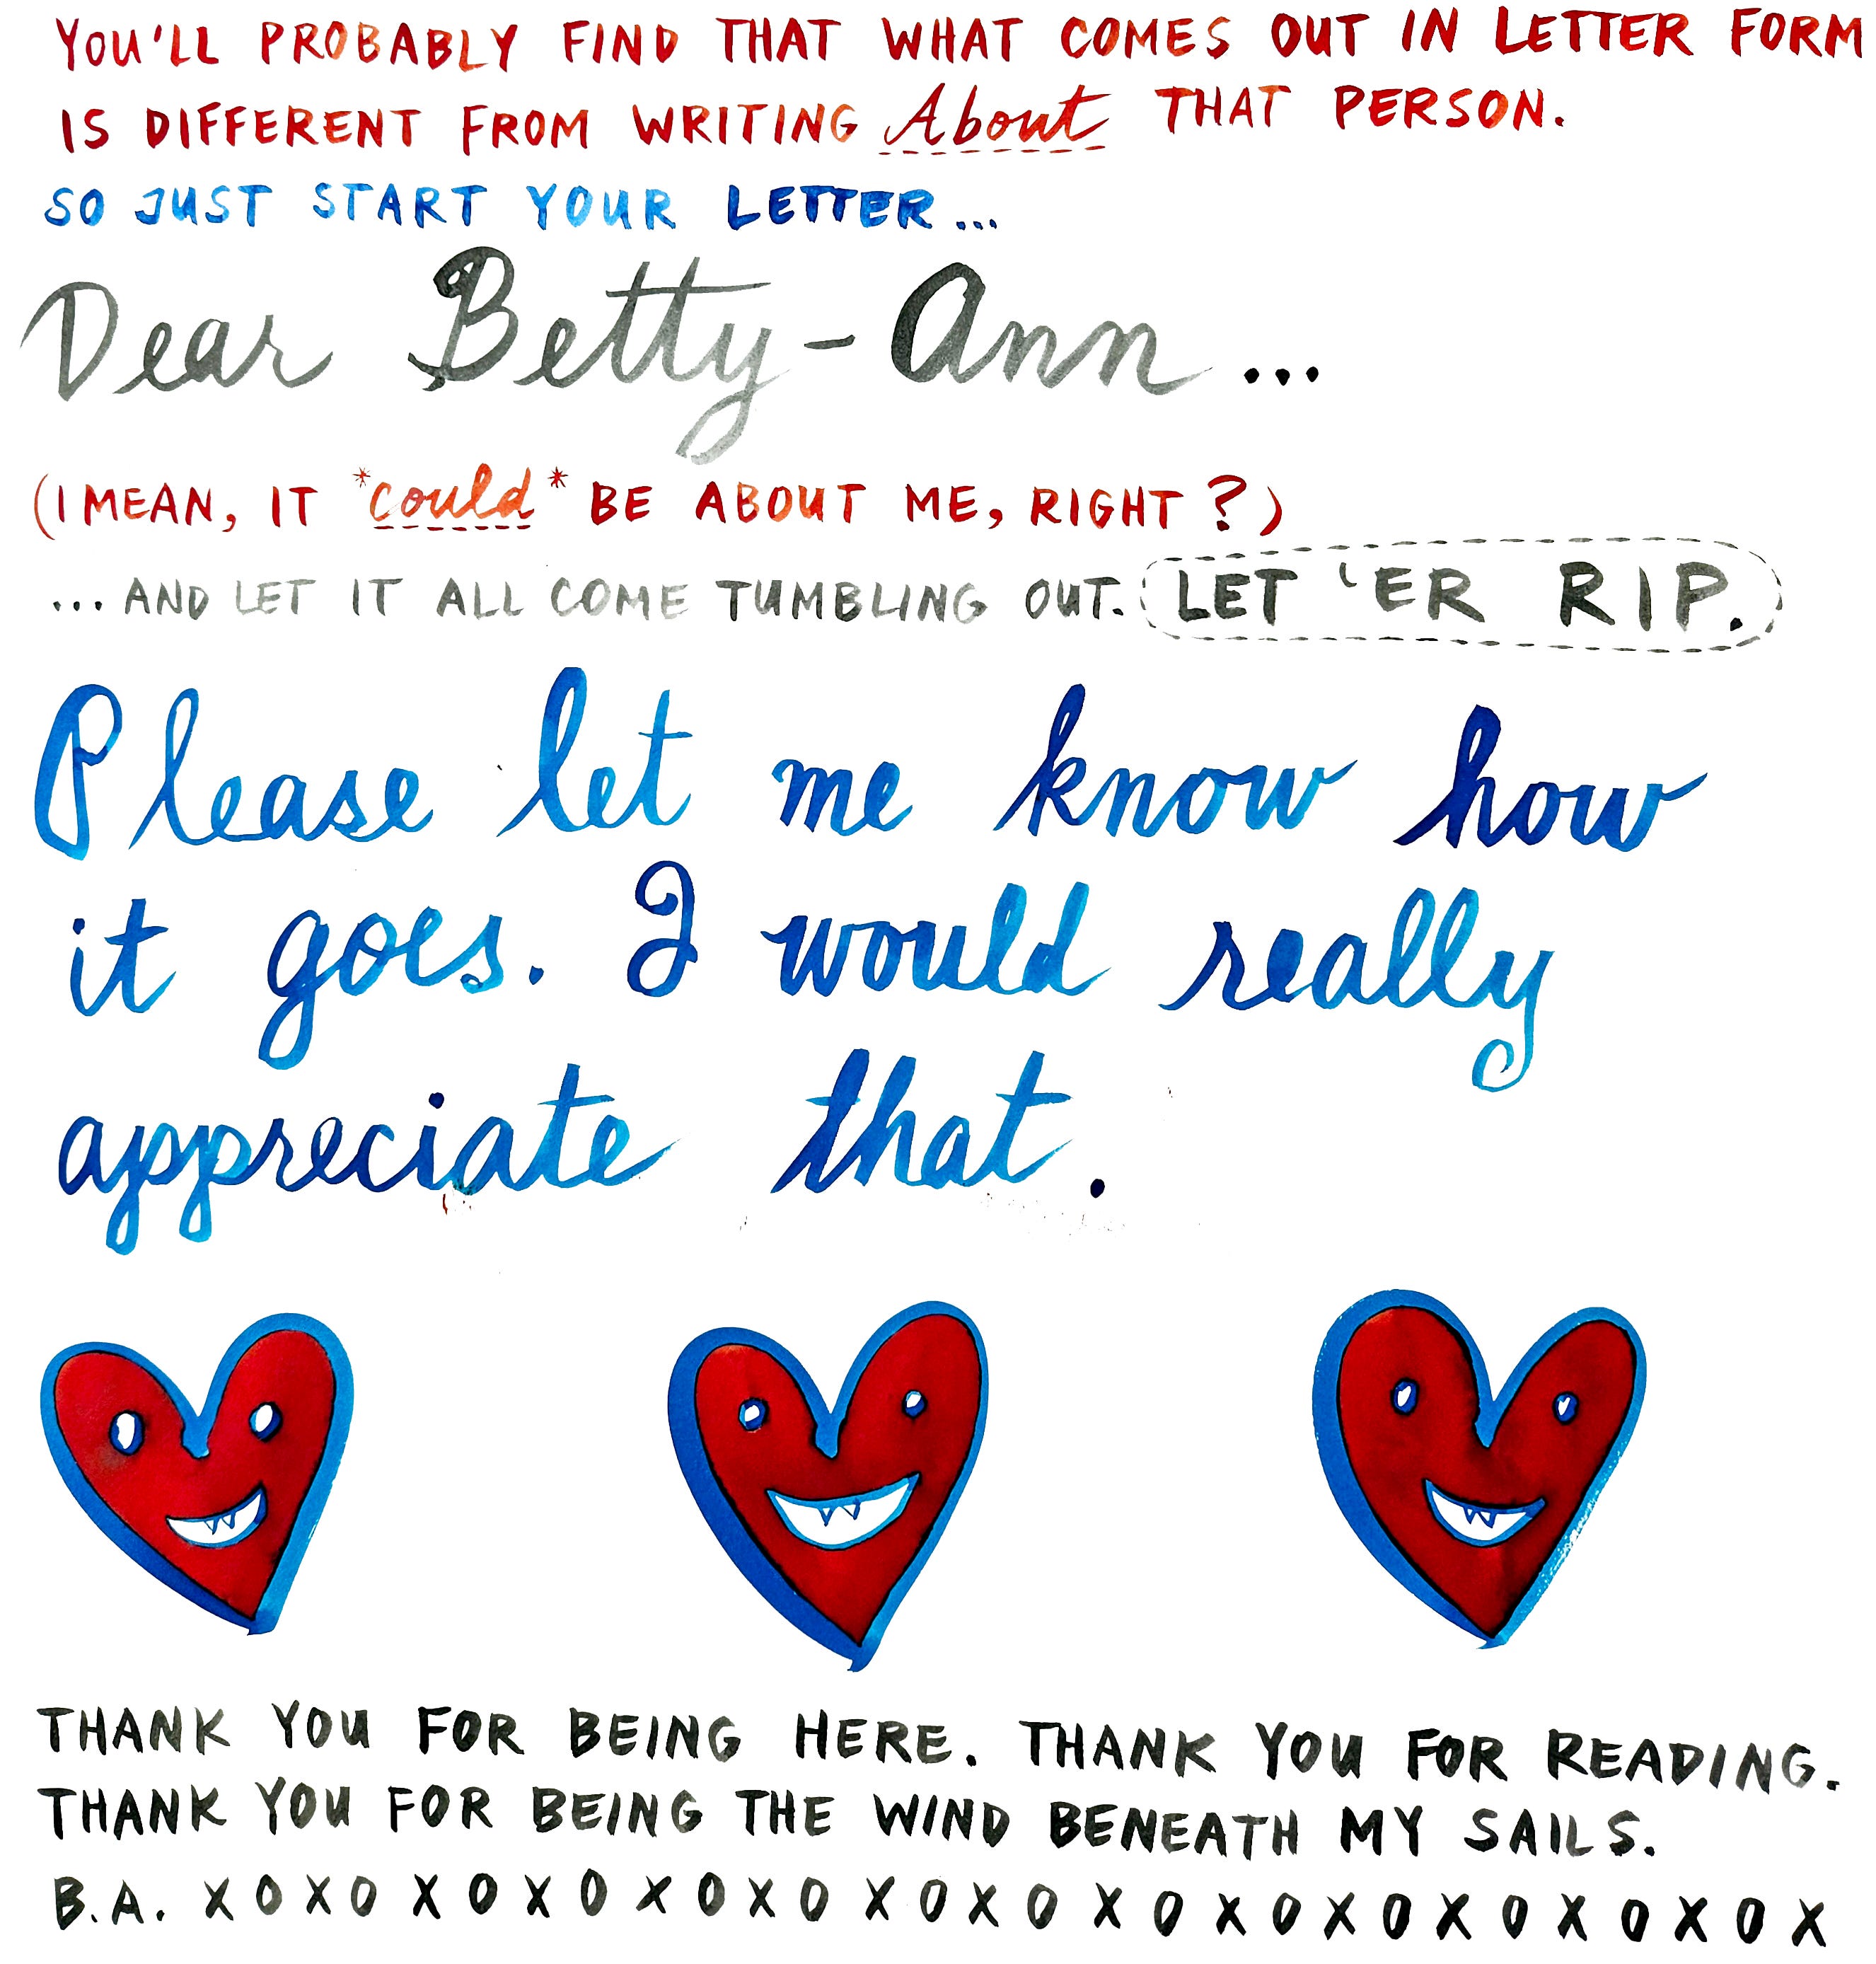 YOU'LL PROBABLY FIND THAT WHAT COMES OUT IN LETTER FORM
IS DIFFERENT FROM WRITING About THAT PERSON.
SO JUST START YOUR LETTER...
Dear Betty-Ann...
(I MEAN, IT *could* BE ABOUT ME, RIGHT?)
...AND LET IT ALL COME TUMBLING OUT. LET 'ER RIP.
Please let me know how
it goes. I would really
appreciate that.
THANK YOU FOR BEING HERE. THANK YOU FOR READING.
THANK YOU FOR BEING THE WIND BENEATH MY SAILS.
B.A. X O X O X O X O X O X O X O X O X O X O X O X O X O X O X